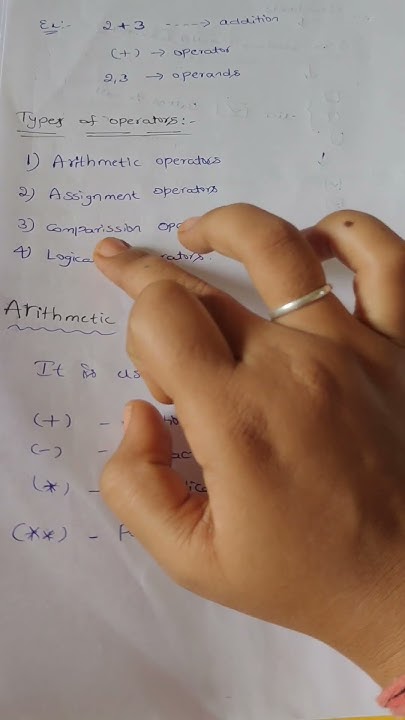 Ex:- 2+3 ----> addition
(+) → operator
2,3 → operands
Types of operators:-
1) Arithmetic operators
2) Assignment operators
3) Comparission
4) 
Arithmetic
It is
(+) -
(-) -
(*) -
(**) -